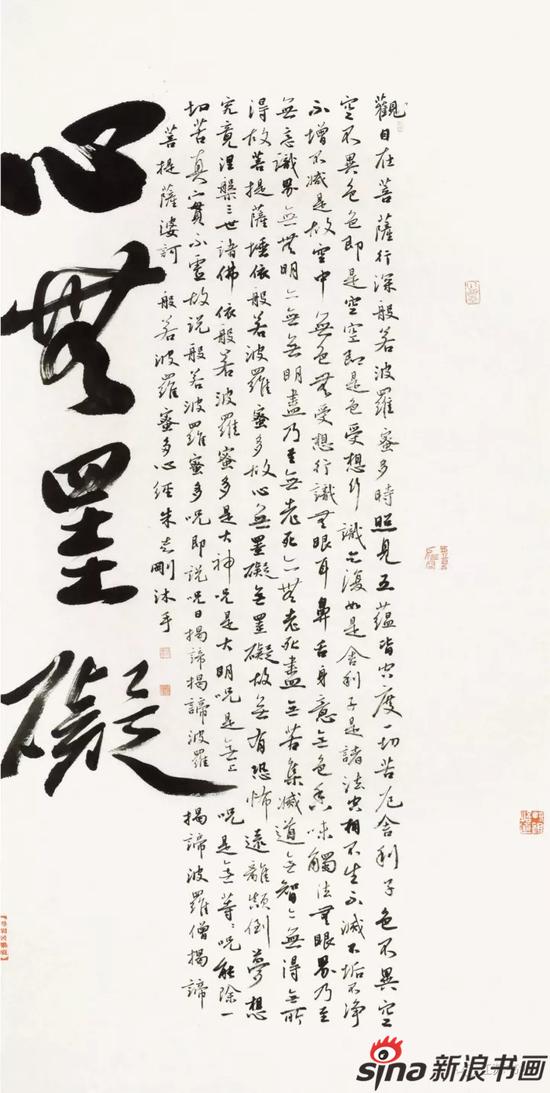 觀自在菩薩行深般若波羅蜜多時照見五蘊皆空度一切苦厄舍利子色不異空
空不異色色即是空空即是色受想行識亦復如是舍利子是諸法空相不生不滅不垢不净
不增不減是故空中無色無受想行識無眼耳鼻舌身意無色香味觸法無眼界乃至
無意識界無無明亦無無明盡乃至無老死亦無老死盡無苦集滅道無智亦無得無所
得故菩提薩埵依般若波羅蜜多故心無罣礙無罣礙故無有恐怖遠離顛倒夢想
究竟涅槃三世諸佛依般若波羅蜜多是大神咒是大明咒是無上咒是無等等咒能除一
切苦真實不虛故说般若波羅蜜多咒即說咒曰揭諦揭諦波羅揭諦波羅僧揭諦
菩提薩婆訶 般若波羅蜜多心經朱志剛沐手
心無罣礙
sina新浪书画